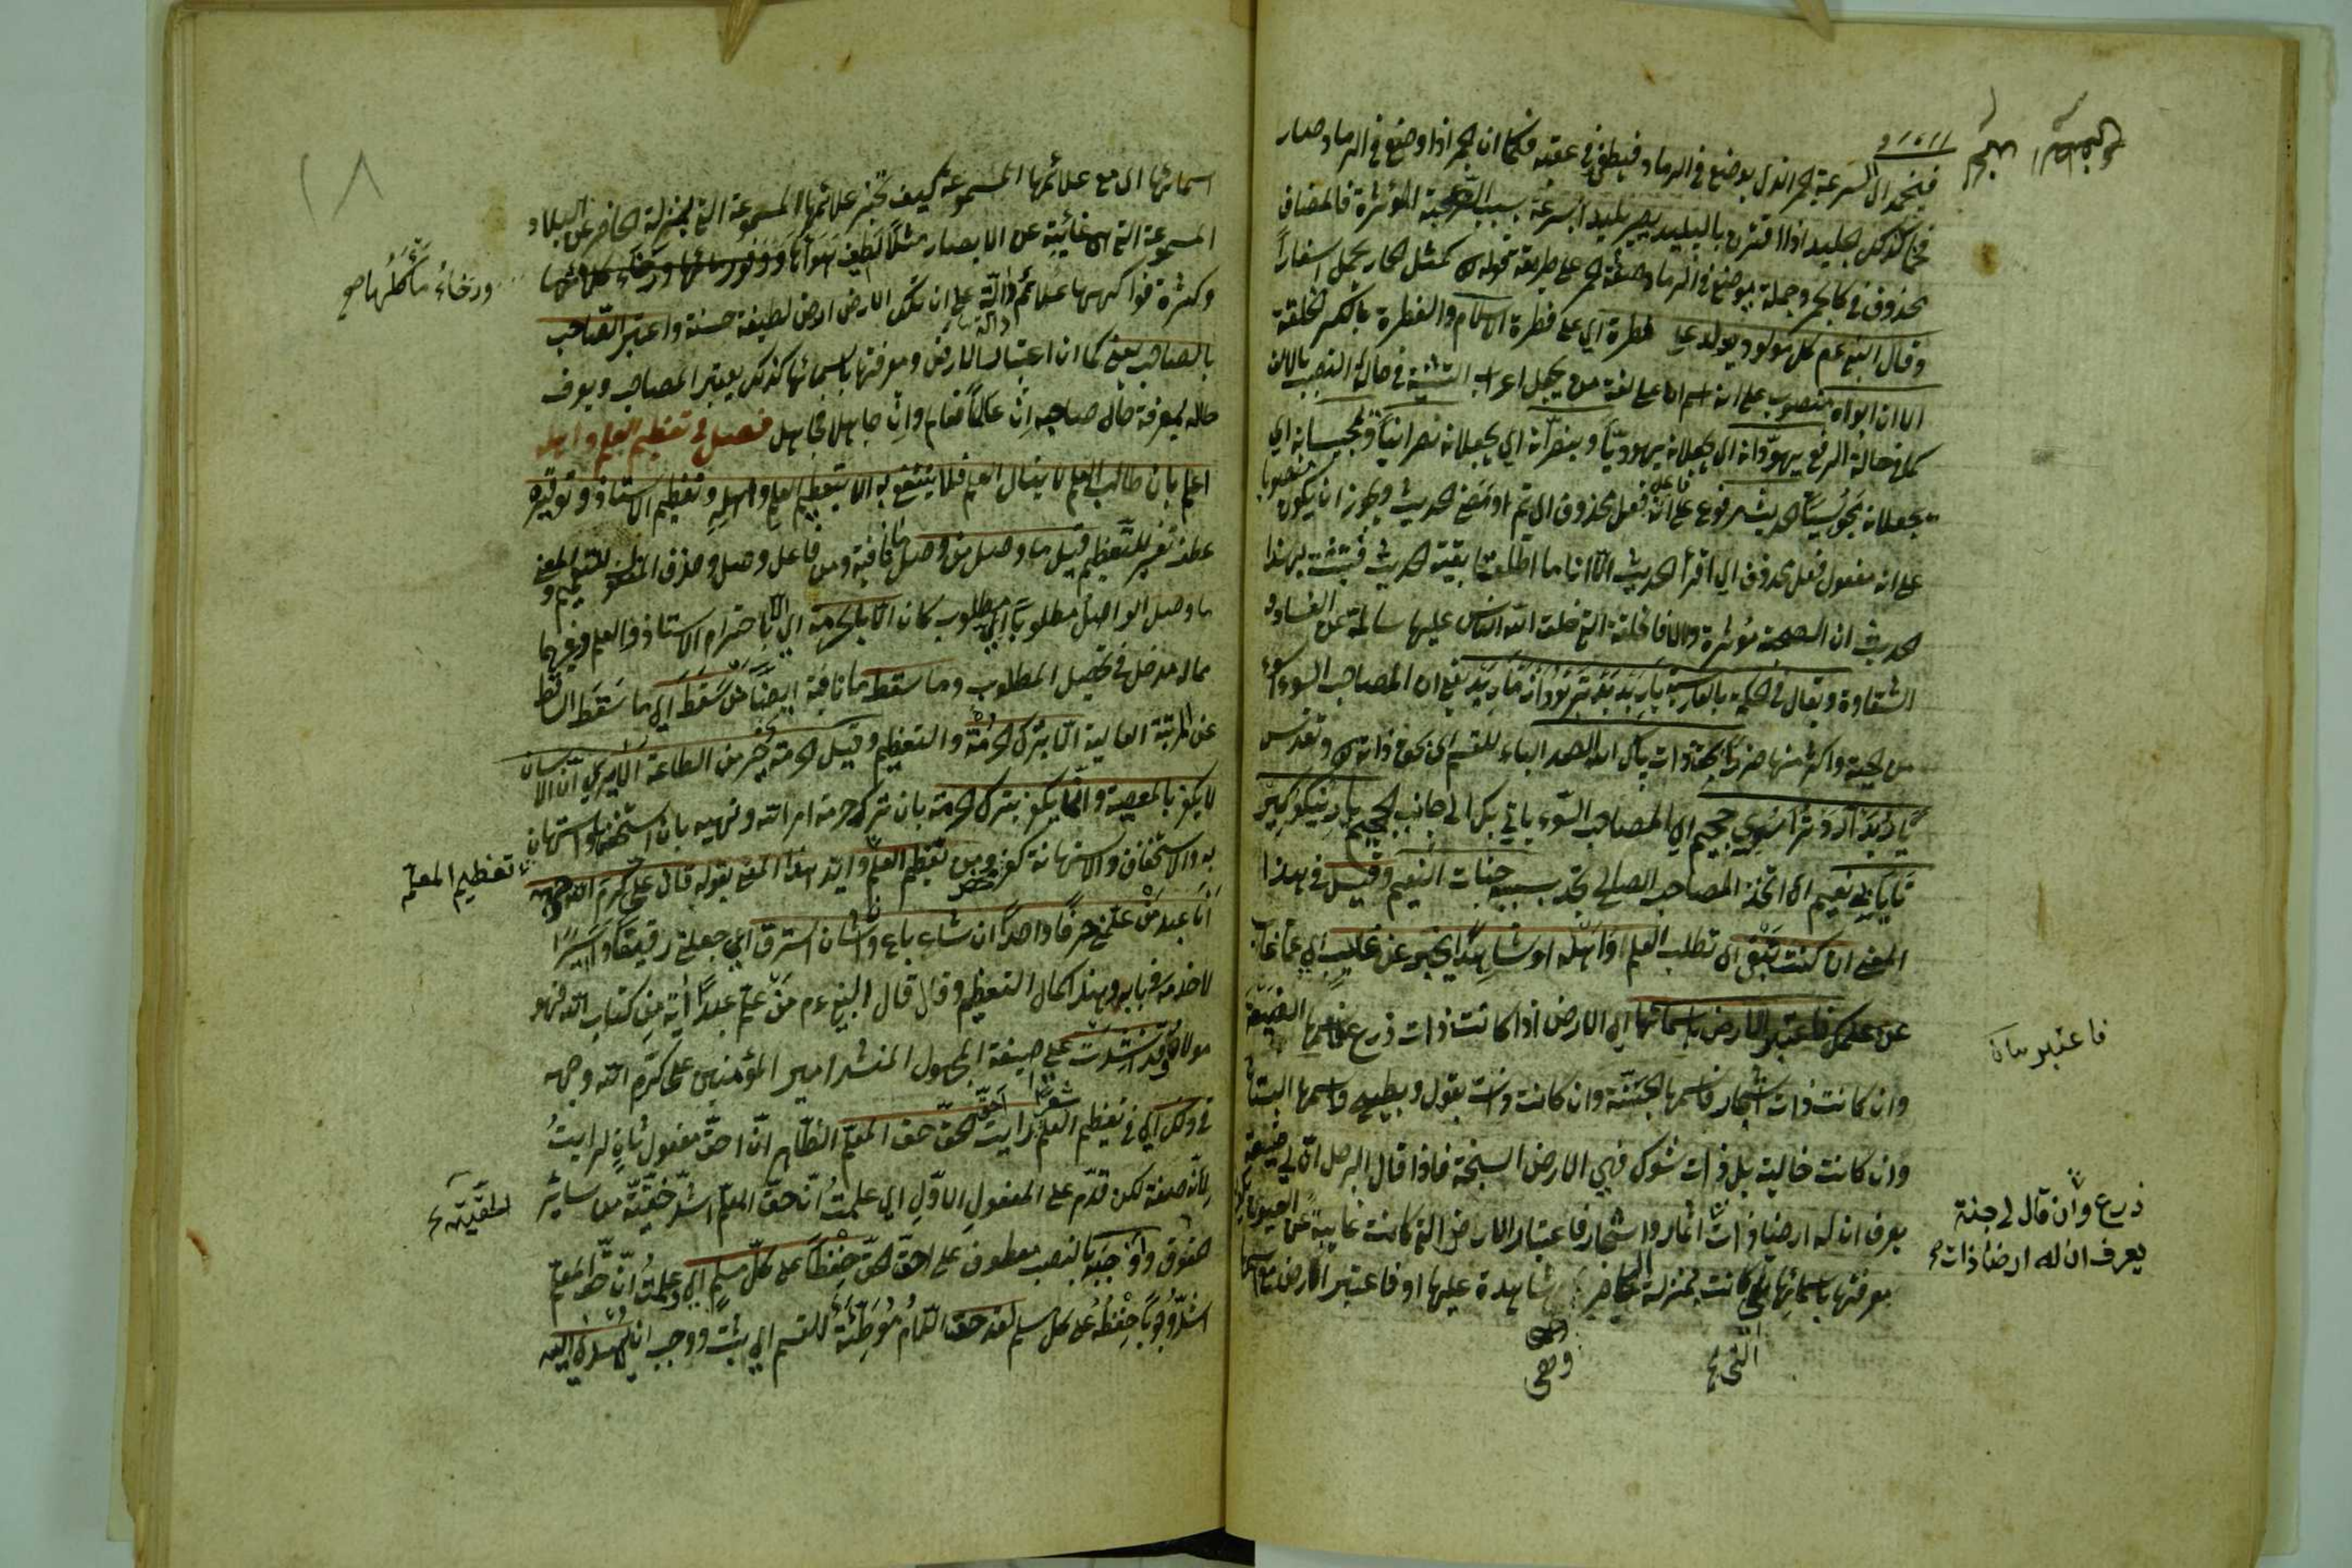 فينخمد اي السرعة الجمر الذي يوضع في الرماد فيطفئ في عقبه فكما ان الجمر اذا وضع في الرماد صار
فحما كذلك الجليد اذا اقترن بالبليد يصير بليدا بسرعة بسبب الصحبة المؤثرة فالمضاف
محذوف في كالجمر وجملة يوضع في الرماد صفة الجمر على طريقة قوله كمثل الحمار يحمل اسفارا
وقال النبي عم كل مولود يولد على فطرة اي على فطرة الاسلام والفطرة بالكسر الخلقة
الا ان ابواه منصوب على انه اسم ان على لغة من يجعل اعراب التثنية في حالة النصب بالالف
كما في حالة الرفع يهودانه اي يجعلانه يهوديا وينصرانه اي يجعلانه نصرانيا ويمجسانه اي
يجعلانه مجوسيا الحديث مرفوع على انه فاعل فعل محذوف اي تم او مضى الحديث ويجوز ان يكون منصوبا
على انه مفعول فعل محذوف اي اقرأ الحديث الا انا ما اطلعنا بقية الحديث فثبت بهذا
الحديث ان الصحبة مؤثرة والا فالخلقة التي خلق الله الناس عليها سالمة عن الفساد و
الشقاوة ويقال في الحكمة بالفارسية يار بد بدتر بود از مار بد يعني ان المصاحب السوء اسوء
من الحية واكثر منها ضررا بحق ذات پاك الله الصمد الباء للقسم اي بحق ذاته وتقدس
يار بد آرد ترا سوي جحيم اي المصاحب السوء يأتي بك الى جانب الجحيم يار نيكو گير
تا يابي نعيم اي اتخذ المصاحب الصالح تجد بسببه جنات النعيم وقيل في هذا
المعنى ان كنت تبغي اي تطلب العلم او اهله او شاهدا يخبر عن غائب اي عما غاب
عن علمك فاعتبر الارض باسمائها اي الارض اذا كانت ذات زرع فاسمها الضيعة
فاعتبر
وان كانت ذات اشجار فاسمها الجنة وان كانت ذات بقول وبطيخ فاسمها البستان
وان كانت خالية بل ذات شوك فهي الارض السبخة فاذا قال الرجل ان لي ضيعة
زرع وان قال لي جنة
يعرف ان له ارضا ذات
يعرف ان له ارضا ذات اثمار واشجار فاعتبار الارض التي كانت غايبة عن العيون
معرفتها باسمائها التي كانت بمنزلة الحاضر شاهدة عليها او فاعتبر الارض مع اسمائها
وهي
التي
اسمائها اي مع علائمها المسموعة كيف تخبر علائمها المسموعة التي بمنزلة الحاضر عن البلاد
المسموعة التي هي غائبة عن الابصار مثلا لطيف هوائها ووفور مائها ورخاء مأكلها
وكثرة فواكهها علائم دالة على ان تلك الارض ارض لطيفة حسنة واعتبر الصاحب
بالصاحب يعني كما ان اعتبار الارض ومعرفتها باسمائها كذلك يعتبر المصاحب ويعرف
حاله بمعرفة حال صاحبه ان عالما فعالم وان جاهلا فجاهل فصل في تعظيم العلم واهله
اعلم بان طالب العلم لا ينال العلم فلا ينتفع به الا بتعظيم العلم واهله وتعظيم الاستاذ وتوقيره
عطف تفسير للتعظيم قيل ما وصل من وصل ما نافية ومن فاعل وصل وحذف المفعول للتعميم والمعنى
ما وصل الواصل مطلوبا اي مطلوب كان الا بالحرمة اي الا باحترام الاستاذ والعلم وغيرهما
مما له مدخل في تحصيل المطلوب وما سقط ما نافية ايضا من سقط اي ما سقط الساقط
عن المرتبة العالية الا بترك الحرمة والتعظيم وقيل الحرمة خير من الطاعة الا يرى ان الانسان
لا يكفر بالمعصية وانما يكفر بترك الحرمة بان ترك حرمة امر الله ونهيه بان استخف واستهان
به والاستخفاف والاستهانة كفر ومن تعظيم العلم تعظيم المعلم وايد هذا المعنى بقوله قال علي كرم الله وجهه
انا عبد من علمني حرفا واحدا ان شاء باع وان شاء استرق اي جعلني رقيقا واسيرا
لا خدمه في بابه وهذا كمال التعظيم وقال قال النبي عم من علم عبدا آية من كتاب الله فهو
مولاه وقد انشدت على صيغة المجهول المنشد امير المؤمنين علي كرم الله وجهه
في ذلك اي في تعظيم العلم شعرا رأيت احق الحق حق المعلم الظاهر ان احق مفعول ثان لرأيت
لانه صفة لكن قدم على المفعول الاول اي علمت ان حق المعلم اشد حقية من سائر
الحقوق واوجبه بالنصب معطوف على احق الحق حفظا على كل مسلم اي وعلمت ان حق المعلم
اشد وجوبا حفظه على كل مسلم لقد حق اللام موطئة للقسم اي ثبت ووجب ان يهدى اليه